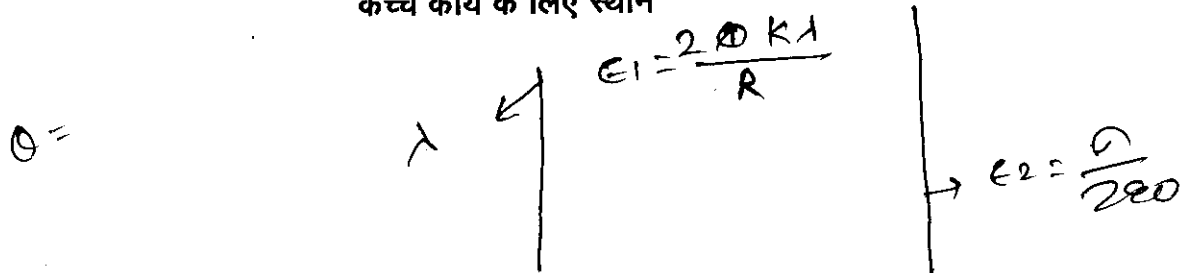 कच्चे कार्य के लिए स्थान
E1 = 2Kλ / R
θ =
λ
E2 = σ / 2ε0